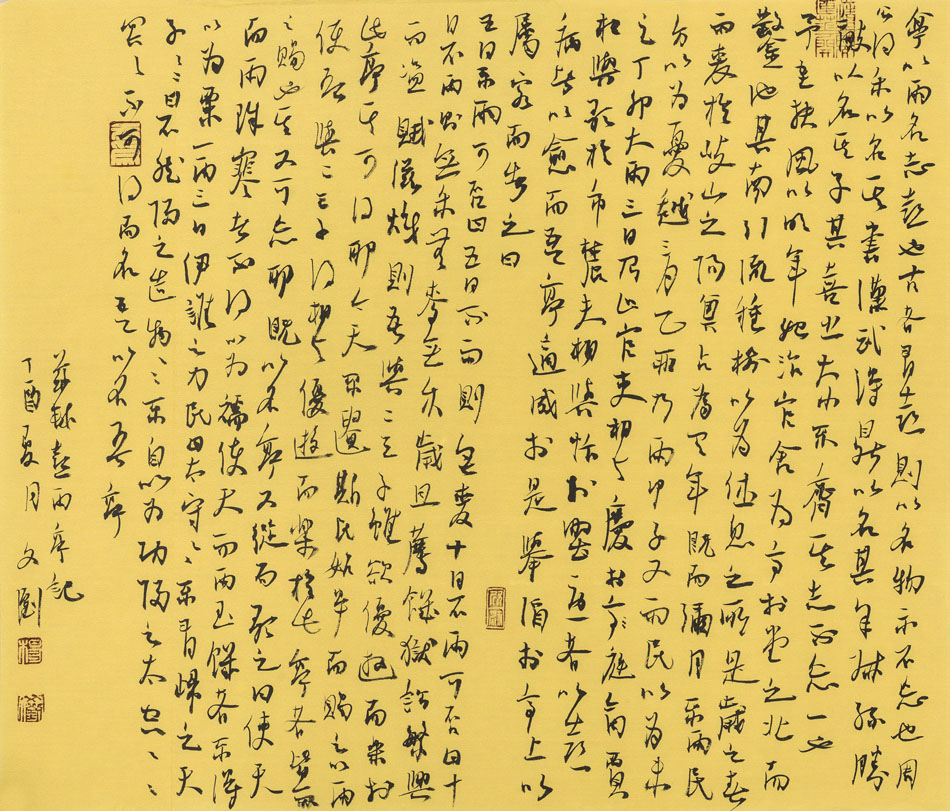 亭以雨名志喜也古者有喜則以名物示不忘也周
公得禾以名其書漢武得鼎以名其年叔孫勝
敵以名其子其喜之大小不齊其志不忘一也
予至扶風以明年始治官舍為亭於堂之北而
鑿池其南引流種樹以為休息之所是歲之春
雨麥於岐山之陽其占為有年既而彌月不雨民
方以為憂越三月乙卯乃雨甲子又雨民以為未
足丁卯大雨三日乃止官吏相與慶於庭商賈
相與歌於市農夫相與忭於野憂者以喜
病者以愈而吾亭適成於是舉酒於亭上以
屬客而告之曰
五日不雨可否曰五日不雨則無麥十日不雨可否曰十
日不雨則無禾無麥無禾歲且薦饑獄訟繁興
而盜賊滋熾則吾與二三子雖欲優遊而樂於
此亭其可得耶今天不遺斯民始旱而賜之以雨
使吾與二三子得相與優遊而樂於此亭者皆雨
之賜也其又可忘耶既以名亭又從而歌之曰使天
而雨珠寒者不得以為襦使天而雨玉饑者不得
以為粟一雨三日伊誰之力民曰太守〻〻不有歸之天
子〻〻曰不然歸之造物〻〻不自以為功歸之太空〻〻
冥〻不可得而名吾以名吾
亭
蘇軾喜雨亭記
丁酉夏月 文劉